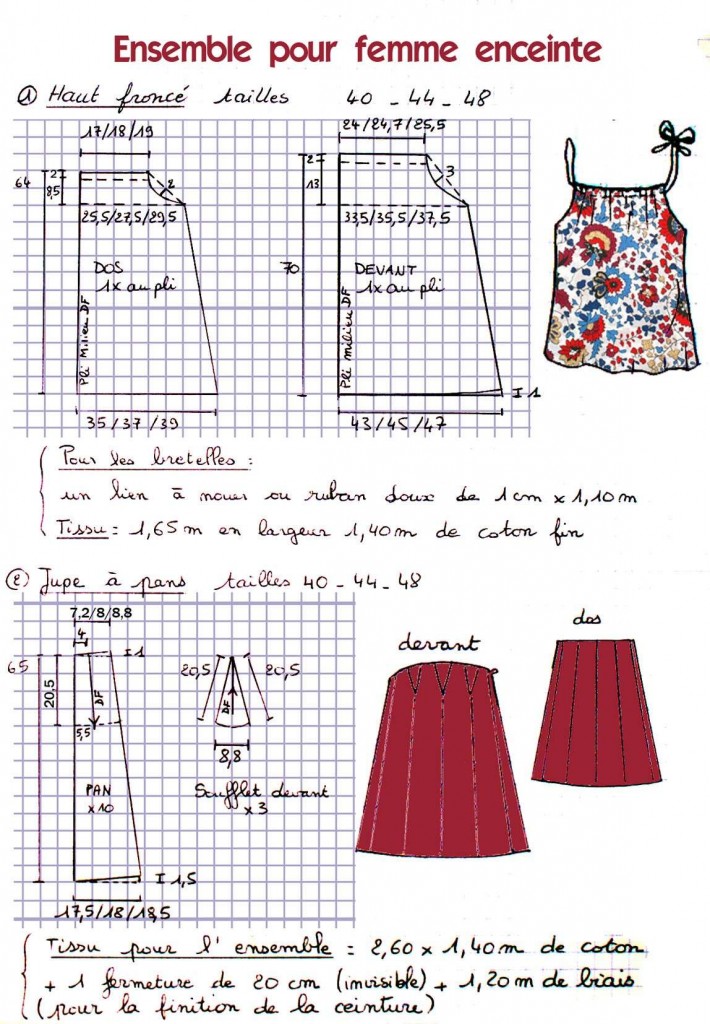 Ensemble pour femme enceinte
① Haut froncé tailles 40 - 44 - 48
17/18/19
24/24,7/25,5
64
2
8,5
2
25,5/27,5/29,5
DOS
1x au pli
Pli Milieu DF
35/37/39
2
13
3
33,5/35,5/37,5
70
DEVANT
1x au pli
Pli milieu DF
1
43/45/47
Pour les bretelles :
un lien à nouer ou ruban doux de 1 cm x 1,10 m
Tissu : 1,65 m en largeur 1,40 m de coton fin
② Jupe à pans tailles 40 - 44 - 48
7,2/8/8,8
4
1
65
20,5
DF
5,5
PAN
x10
1,5
17,5/18/18,5
20,5
20,5
DF
8,8
Soufflet devant
x3
devant
dos
Tissu pour l'ensemble = 2,60 x 1,40 m de coton
+ 1 fermeture de 20 cm (invisible) + 1,20 m de biais
(pour la finition de la ceinture)